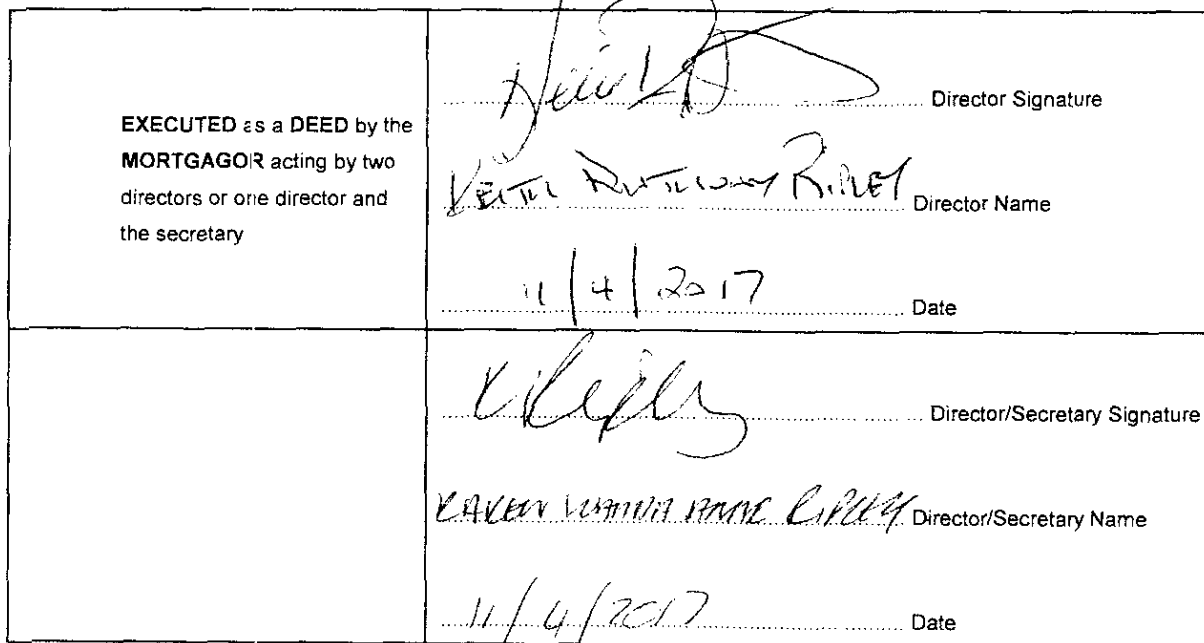 EXECUTED as a DEED by the
MORTGAGOR acting by two
directors or one director and
the secretary
Director Signature
KEITH ANTHONY RIPLEY Director Name
11/4/2017 Date
K Ripley Director/Secretary Signature
KAREN ANNE RIPLEY Director/Secretary Name
11/4/2017 Date